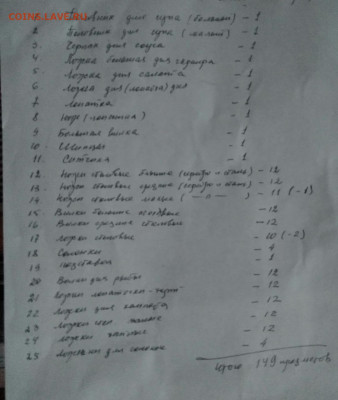 COINS.LAVE.RU
1. Половник для супа (большой) - 1
2. Половник для супа (малый) - 1
3. для соуса - 1
4. Ложка большая для - 1
5. Ложка для салата - 1
6. Ложка для - 1
7 Лопатка - 1
8 Нож (лопатка) - 1
9 Большая вилка - 1
10. Щипцы - 1
11. Ситечко - 1
12. Ножи столовые больш - 12
13. Ножи столовые средние - 12
14 Ножи столовые малые (— п —) - 11 (-1)
15 Вилки большие столовые - 12
16 Вилки средние столовые - 12
17 Ложки столовые - 10 (-2)
18 Солонки - 4
19 подставки - 1
20 Вилки для рыбы - 12
21 Ложки лопаточки - 12
22 Ложки для компота - 12
23 Ложки малые - 12
24 Ложки чайные - 12
25 для солонок - 4
Итого 149 предметов